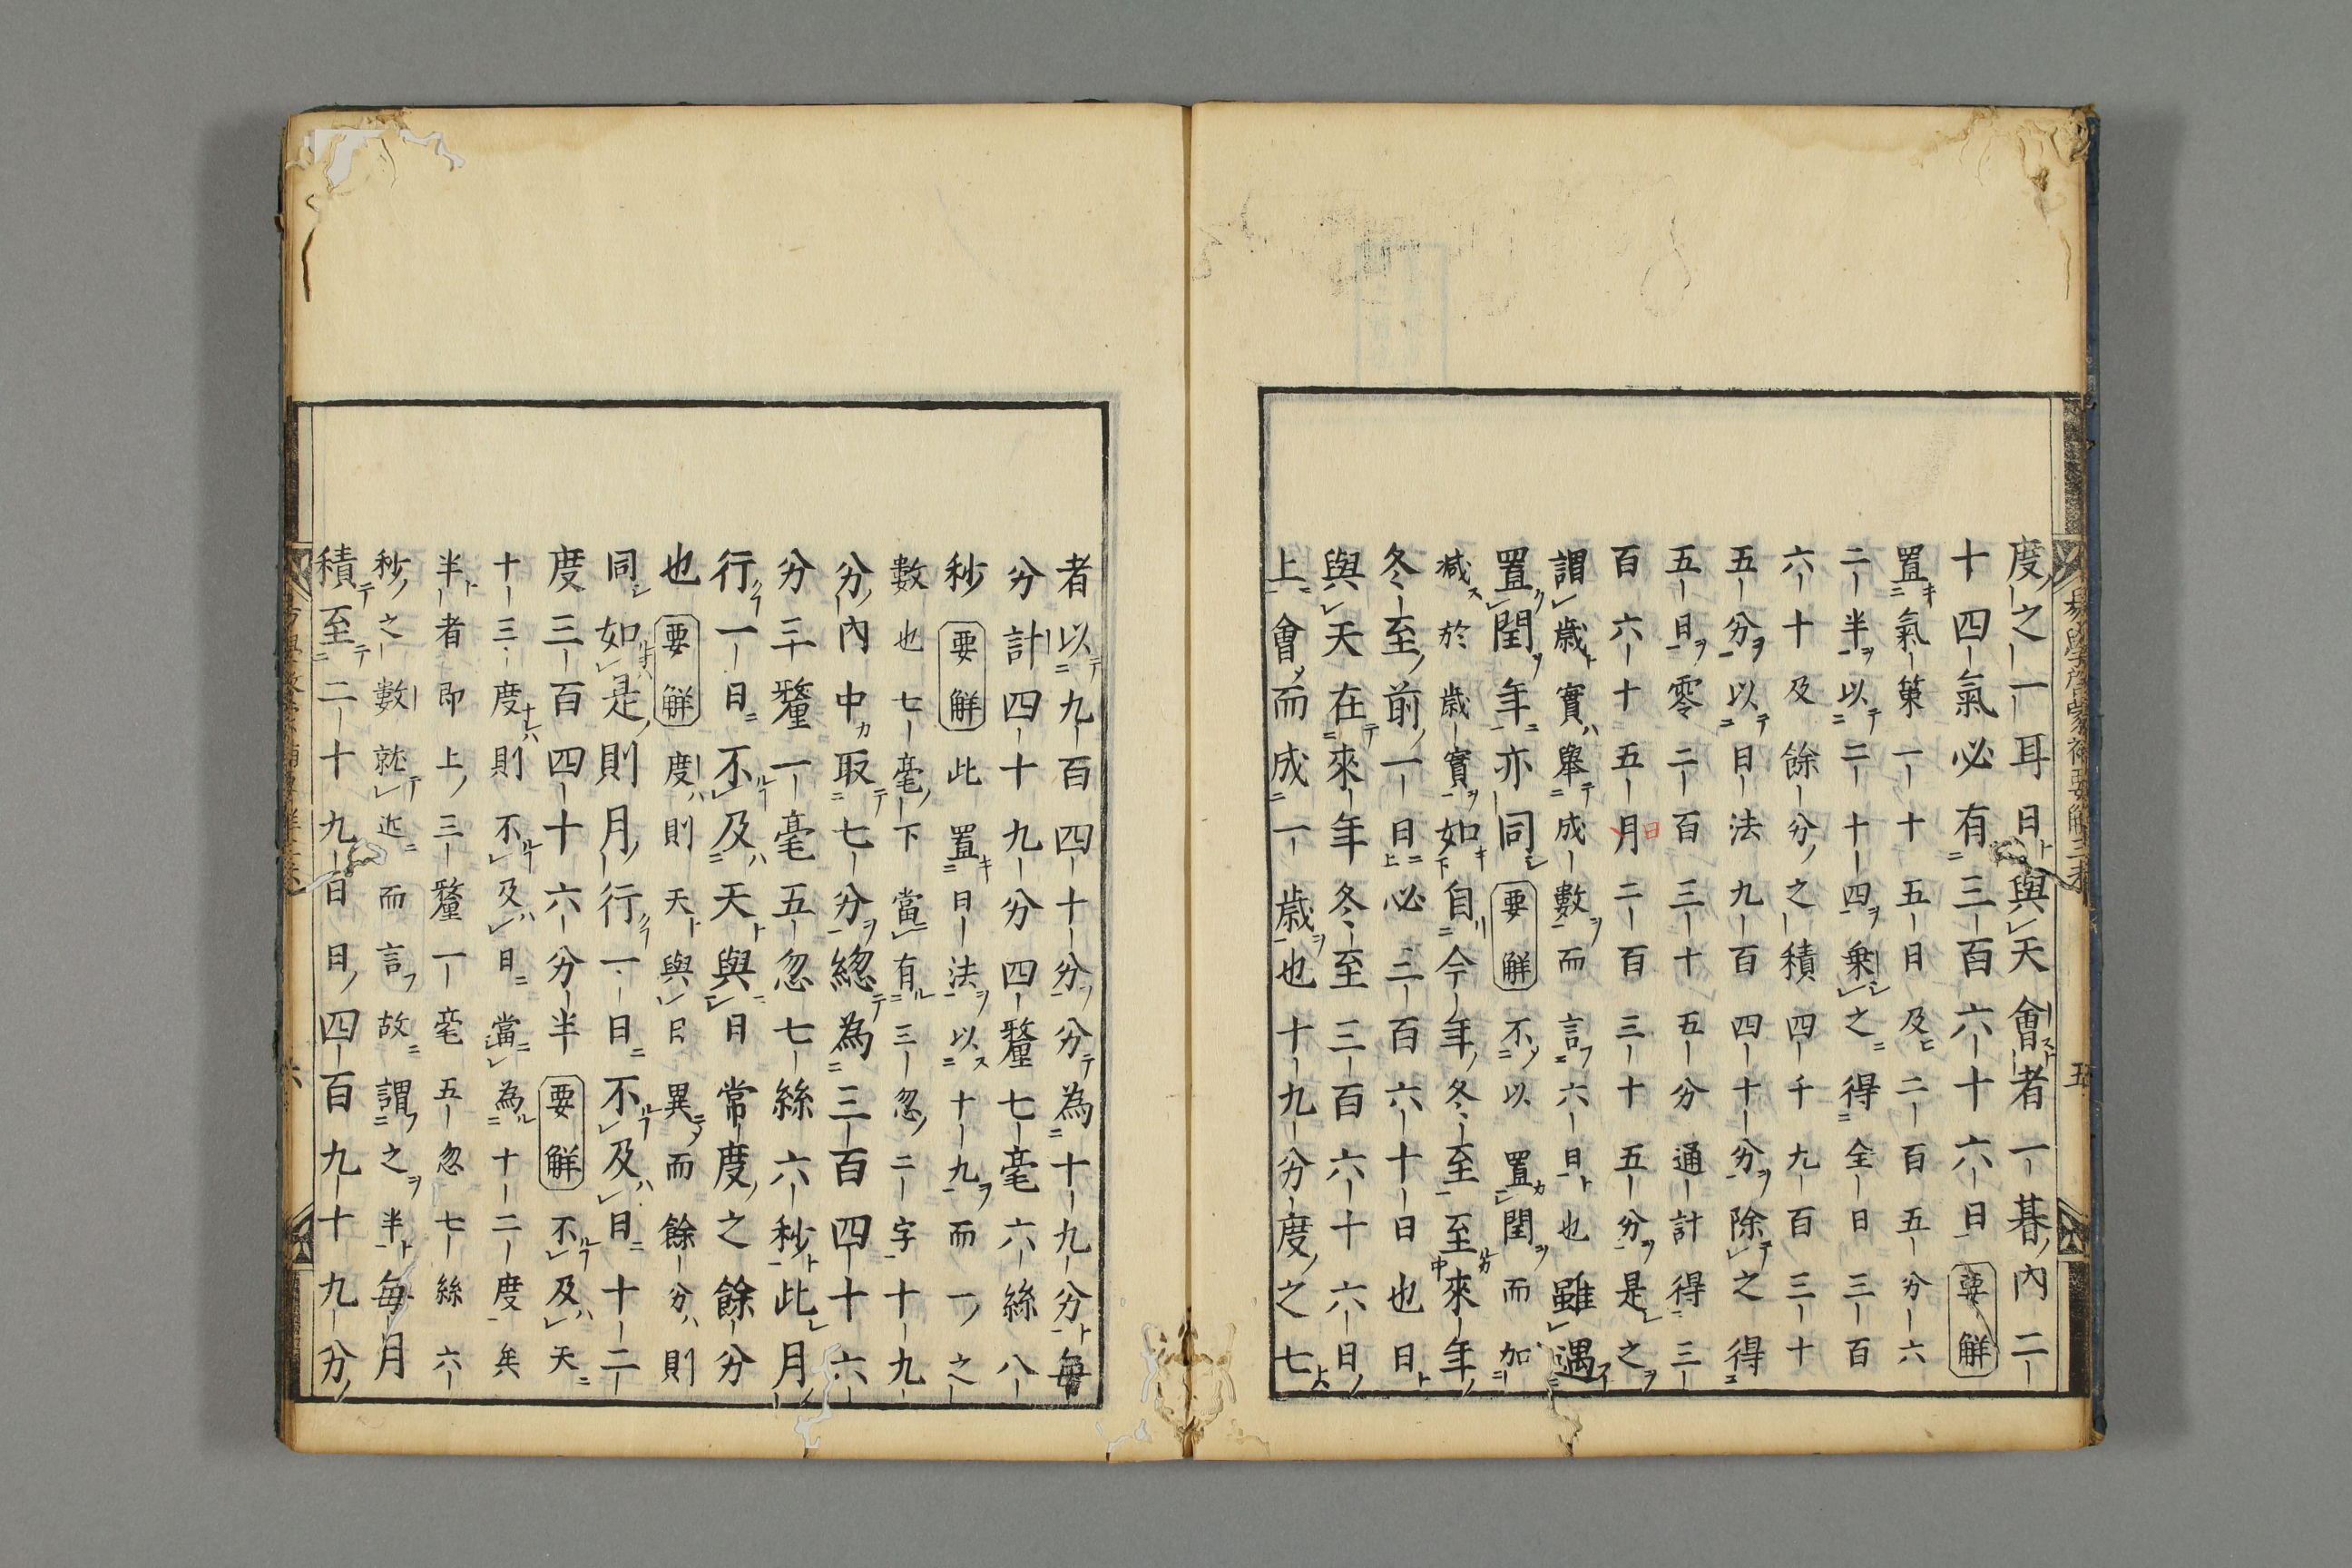 易學啓蒙補要解三末　五
度之一耳日與天會者一朞內二
十四氣必有三百六十六日要解
置氣策一十五日及二百五分六
二半以二十四乗之得全日三百
六十及餘分之積四千九百三十
五分以日法九百四十分除之得
五日零二百三十五分通計得三
百六十五月日二百三十五分是之
謂歳實舉成數而言六日也雖遇
置閏年亦同要解不以置閏而加
減於歳實如自今年冬至至來年
冬至前一日必三百六十日也日
與天在來年冬至三百六十六日
上會而成一歳也十九分度之七
者以九百四十分分為十九分毎
分計四十九分四釐七毫六絲八
秒要解此置日法以十九而一之
數也七毫下當有三忽二字十九
分內中取七分緫為三百四十六
分三釐一毫五忽七絲六秒此月
行一日不及天與日常度之餘分
也要解度則天與日異而餘分則
同如是則月行一日不及日十二
度三百四十六分半要解不及天
十三度則不及日當為十二度矣
半者即上三釐一毫五忽七絲六
秒之數就近而言故謂之半毎月
積至二十九日日四百九十九分